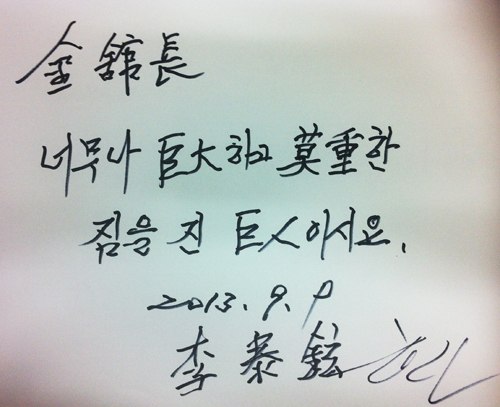 金 舘長
너무나 巨大하고 莫重한
짐을 진 巨人이시요.
2013. 9. 9
李泰鉉